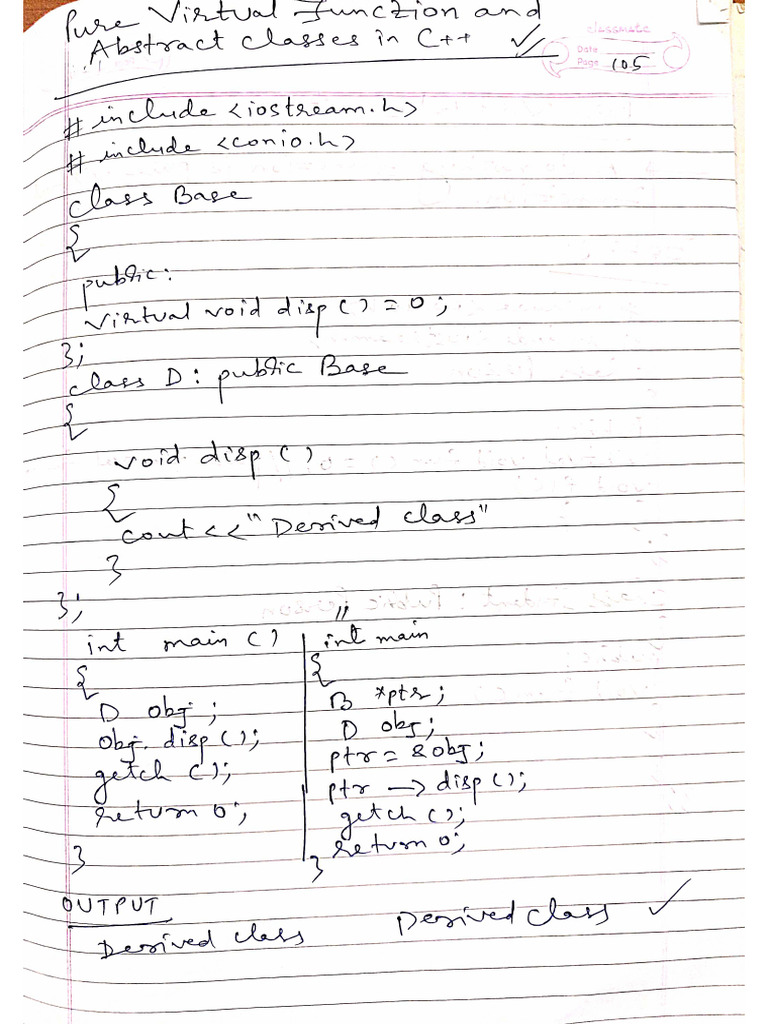 Pure Virtual Function and
Abstract classes in C++
classmate
Date
Page 105
# include <iostream.h>
# include <conio.h>
class Base
{
public:
virtual void disp () = 0;
};
class D : public Base
{
void disp ()
{
cout << "Derived class"
}
};
int main ()
{
D obj ;
obj. disp ();
getch ();
return 0;
}
int main
{
B *ptr;
D obj;
ptr = &obj;
ptr → disp ();
getch ();
return 0;
}
OUTPUT
Derived class
Derived class